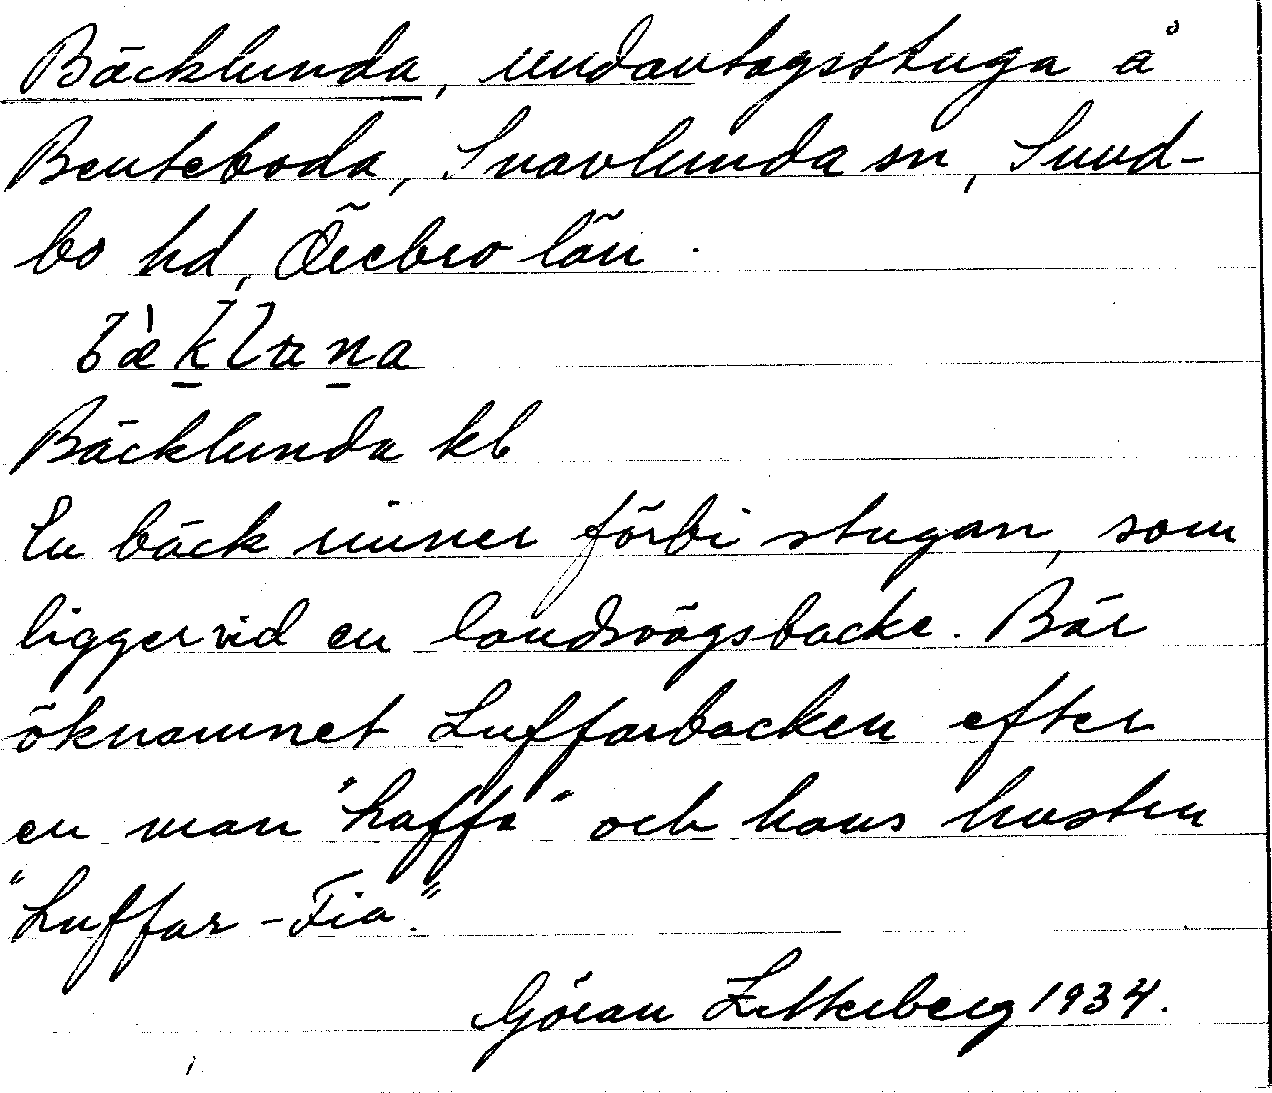 Bäcklunda, undantagsstuga å
Benteboda, Snavlunda sn, Sund-
bo hd, Örebro län.
Bäcklunda kb
En bäck rinner förbi stugan, som
ligger vid en landsvägsbacke. Bär
öknamnet Luffarbacken efter
en man "Laffa" och hans hustru
"Luffar-Fia."
Göran Zetterberg 1934.